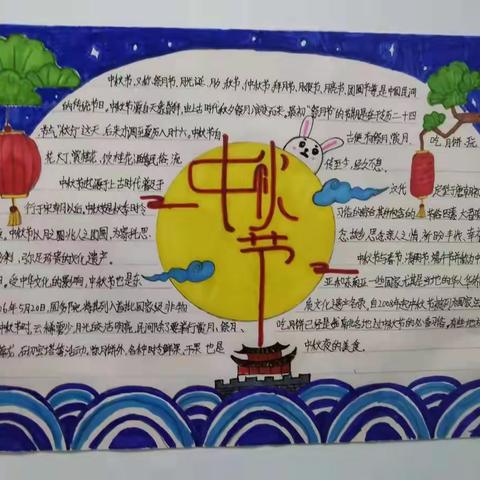 中秋节
中秋节,又称祭月节、月光诞、月夕、秋节、仲秋节、拜月节、月娘节、月亮节、团圆节等,是中国民间
的传统节日。中秋节源自天象崇拜,由上古时代秋夕祭月演变而来。最初“祭月节”的节期是在干支历二十四
“秋分”这天,后来才调至夏历八月十五。中秋节自
古便有祭月、赏月、
吃月饼、玩
花灯、赏桂花、饮桂花酒等民俗,流
传至今,经久不息。
中秋节起源于上古时代,普及于
汉代
定型于唐朝
行于宋朝以后。中秋节是秋季时令
习俗的
中秋节以月之圆兆人之团圆,为寄托思
念故乡,思念亲人之情,祈盼丰收、幸
弥足珍贵的文化遗产。
中秋节与春节、清明节、端午节
受中华文化的影响,中秋节也是东
亚和东南亚一些国家尤其是当地的华人华侨
06年5月20日,国务院将其列入首批国家级非物
质文化遗产名录。自2008年起中秋节被列为国家法
中秋节时,云稀雾少,月光皎洁明亮,民间除了要举行赏月、祭月、
吃月饼
有些地方
中秋夜的美食。